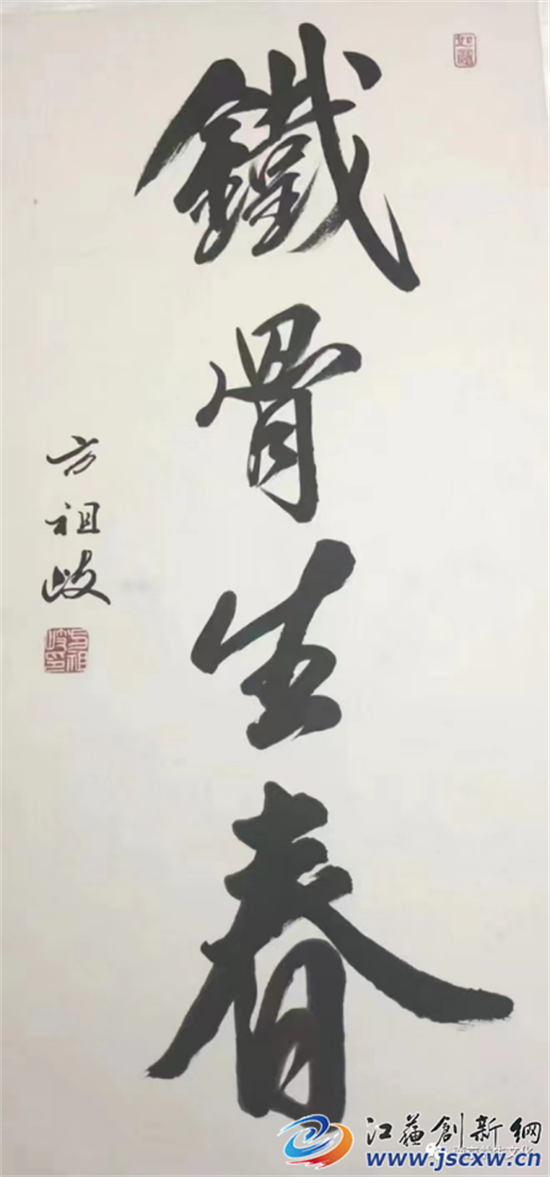 鐵骨生春
方祖岐
江蘇創新網
www.jscxw.cn